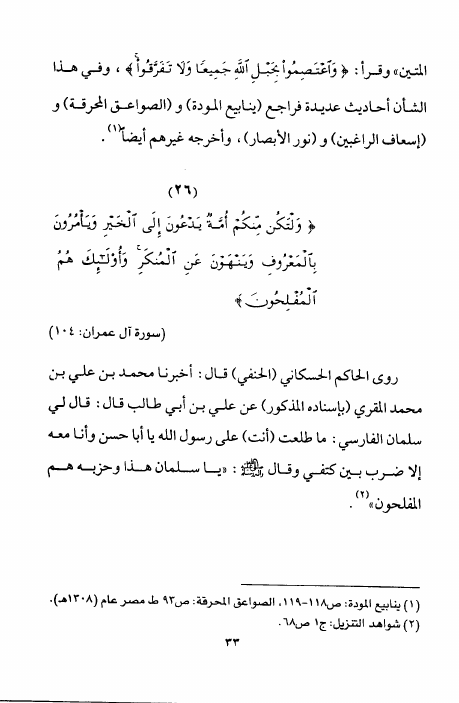 المتين» وقرأ: ﴿ وَٱعْتَصِمُوا۟ بِحَبْلِ ٱللَّهِ جَمِيعًا وَلَا تَفَرَّقُوا۟ۚ ﴾ ، وفي هذا
الشأن أحاديث عديدة فراجع (ينابيع المودة) و (الصواعق المحرقة) و
(إسعاف الراغبين) و (نور الأبصار)، وأخرجه غيرهم أيضاً(١).
(٢٦)
﴿ وَلْتَكُن مِّنكُمْ أُمَّةٌ يَدْعُونَ إِلَى ٱلْخَيْرِ وَيَأْمُرُونَ
بِٱلْمَعْرُوفِ وَيَنْهَوْنَ عَنِ ٱلْمُنكَرِۚ وَأُو۟لَٰٓئِكَ هُمُ
ٱلْمُفْلِحُونَ ﴾
(سورة آل عمران: ١٠٤)
روى الحاكم الحسكاني (الحنفي) قال: أخبرنا محمد بن علي بن
محمد المقري (بإسناده المذكور) عن علي بن أبي طالب قال: قال لي
سلمان الفارسي: ما طلعت (أنت) على رسول الله يا أبا حسن وأنا معه
إلا ضرب بين كتفي وقال ﷺ: «يا سلمان هذا وحزبه هم
المفلحون»(٢).
(١) ينابيع المودة: ص١١٨-١١٩، الصواعق المحرقة: ص٩٣ ط مصر عام (١٣٠٨هـ).
(٢) شواهد التنزيل: ج١ ص٦٨.
٣٣